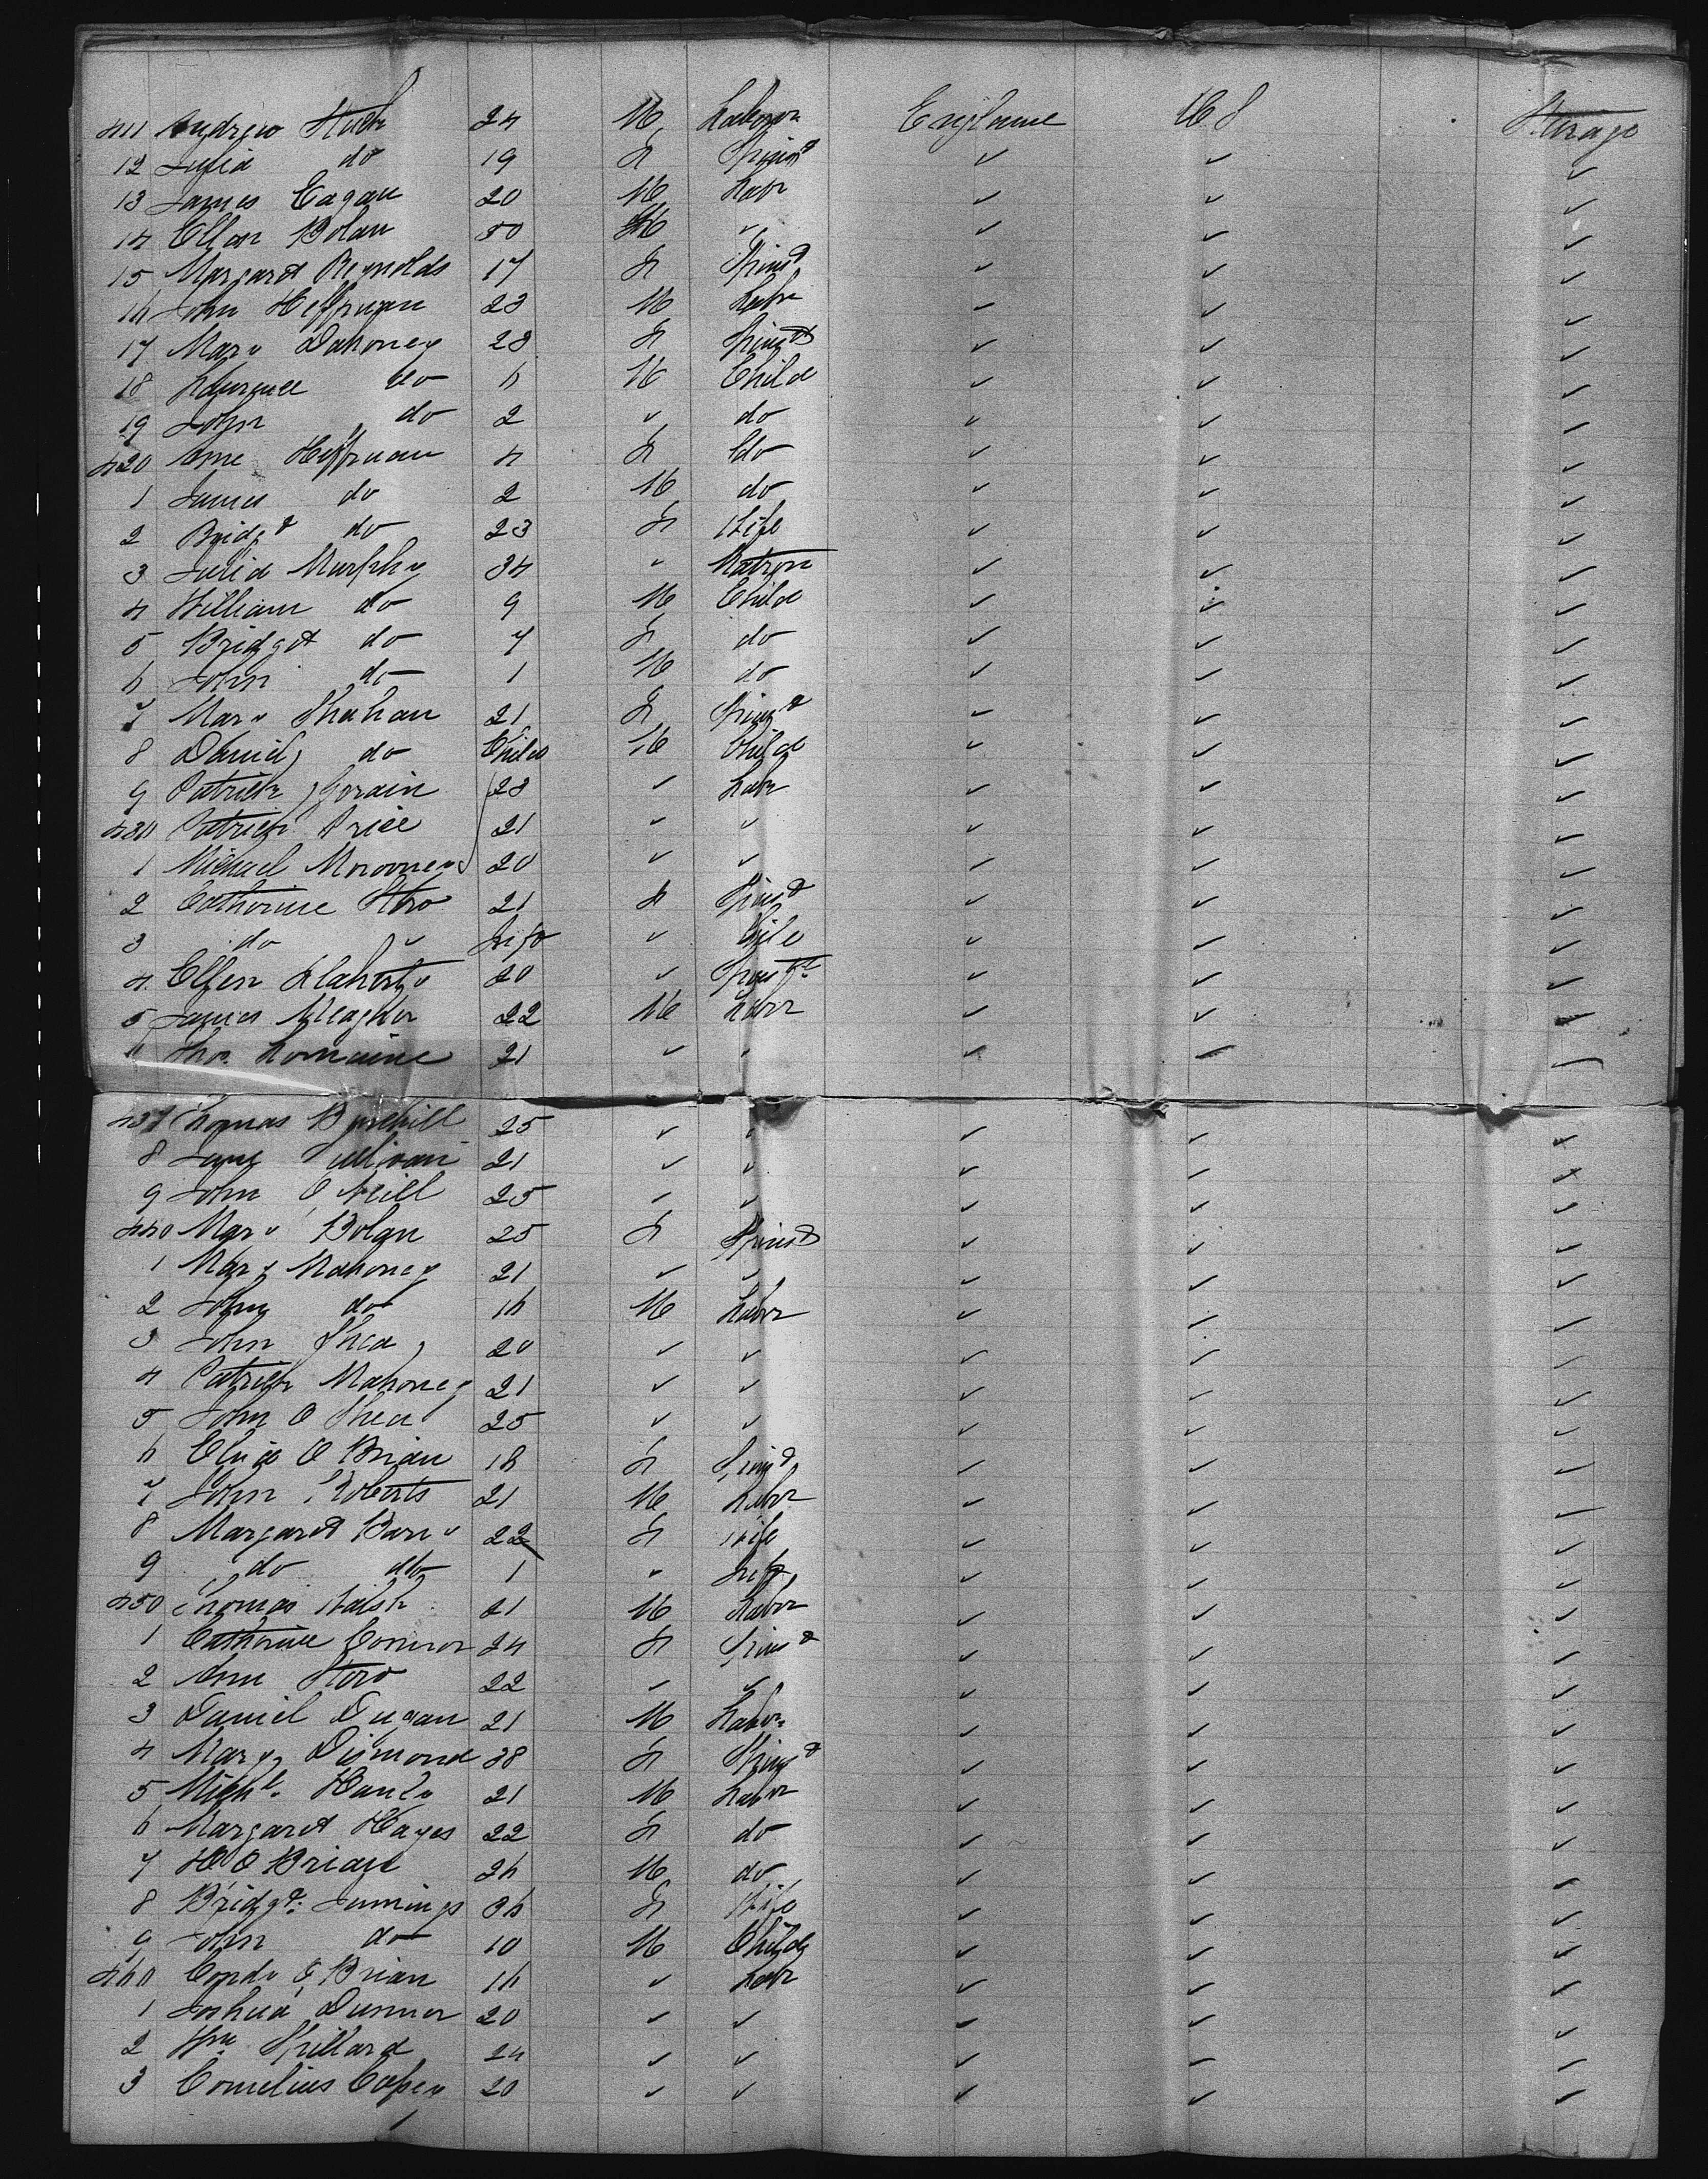 411 Andrew 24 M Laborer England U S Sterage
12 Julia do 19 F Spinst ✓ ✓ ✓
13 James Eagan 20 M Labr ✓ ✓ ✓
14 Ellen Bolan 50 M ✓ ✓ ✓ ✓
15 Margaret Reynolds 17 F Spinst ✓ ✓ ✓
16 John Heffernan 23 M Labr ✓ ✓ ✓
17 Mary Dahoney 23 F Spinst ✓ ✓ ✓
18 Laurence do 6 M Child ✓ ✓ ✓
19 John do 2 ✓ do ✓ ✓ ✓
420 Ann Heffernan 4 F do ✓ ✓ ✓
1 James do 2 M do ✓ ✓ ✓
2 Bridgt do 23 F Wife ✓ ✓ ✓
3 Julia Murphy 34 ✓ Matron ✓ ✓ ✓
4 William do 9 M Child ✓ ✓ ✓
5 Bridget do 7 F do ✓ ✓ ✓
6 John do 1 M do ✓ ✓ ✓
7 Mary Shahan 21 F Spinst ✓ ✓ ✓
8 Daniel do Child M Child ✓ ✓ ✓
9 Patrick 23 ✓ Labr ✓ ✓ ✓
430 Patrick Price 21 ✓ ✓ ✓ ✓ ✓
1 Michael Moroney 20 ✓ ✓ ✓ ✓ ✓
2 Catherine 21 F Spinst ✓ ✓ ✓
3 do ✓ Inft ✓ Child ✓ ✓ ✓
4 Ellen Flaherty 20 ✓ Spinstr ✓ ✓ ✓
5 James Meagher 22 M Labr ✓ ✓ ✓
6 Thos. Lomaine 21 ✓ ✓ ✓ ✓ ✓
437 Thomas 25 ✓ ✓ ✓ ✓ ✓
8 Sullivan 21 ✓ ✓ ✓ ✓ ✓
9 John O Neill 25 ✓ ✓ ✓ ✓ ✓
440 Mary Bolan 25 F Spinst ✓ ✓ ✓
1 Mary Mahoney 21 ✓ ✓ ✓ ✓ ✓
2 John do 16 M Labor ✓ ✓ ✓
3 John Shea 20 ✓ ✓ ✓ ✓ ✓
4 Patrick Mahoney 21 ✓ ✓ ✓ ✓ ✓
5 John O Shea 25 ✓ ✓ ✓ ✓ ✓
6 Eliza O Brian 18 F Spinst ✓ ✓ ✓
7 John Roberts 21 M Labor ✓ ✓ ✓
8 Margaret Barry 22 F Wife ✓ ✓ ✓
9 do do 1 ✓ Inft ✓ ✓ ✓
450 Thomas Walsh 21 M Labor ✓ ✓ ✓
1 Catherine Connor 24 F Spinst ✓ ✓ ✓
2 Ann 22 ✓ ✓ ✓ ✓ ✓
3 Daniel Dugan 21 M Labor ✓ ✓ ✓
4 Mary Dismond 38 F Spinst ✓ ✓ ✓
5 Michl. Hanly 21 M Labor ✓ ✓ ✓
6 Margaret Hayes 22 F do ✓ ✓ ✓
7 O Brian 26 M do ✓ ✓ ✓
8 Bridgt. Jennings 36 F Wife ✓ ✓ ✓
9 John do 10 M Child ✓ ✓ ✓
460 O Brian 16 ✓ Labr ✓ ✓ ✓
1 Joshua Dunner 20 ✓ ✓ ✓ ✓ ✓
2 Wm. Spillard 24 ✓ ✓ ✓ ✓ ✓
3 Cornelius 20 ✓ ✓ ✓ ✓ ✓